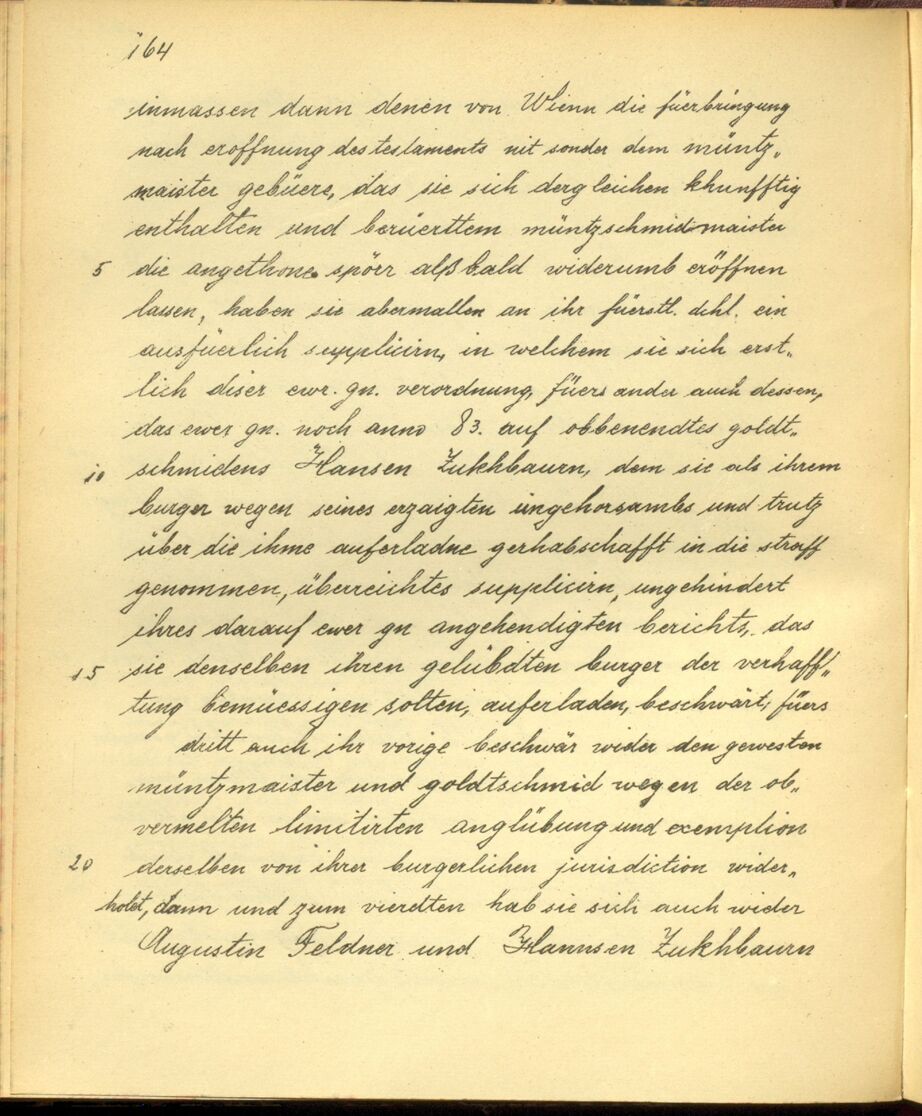 164
inmassen dann denen von Wienn die füerbringung
nach eroffnung des testaments nit sonder dem müntz„
maister gebüere, das sie sich dergleichen khunfftig
enthalten und berüerttem müntzschmidmaister
5 die angethone spörr alßbald widerumb eröffnen
lassen, haben sie abermallen an ihr füerstl. dhl. ein
ausfüerlich supplicirn, in welchem sie sich erst„
lich diser ewr. gn. verordnung, füers ander auch dessen,
das ewer gn. noch anno 83. auf obbenendtes goldt„
10 schmidens Hansen Zukhbaurn, dem sie als ihrem
burger wegen seines erzaigten ungehorsambs und trutz
über die ihme auferladne gerhabschafft in die straff
genommen, überreichtes supplicirn, ungehindert
ihres darauf ewer gn angehendigten berichts, das
15 sie denselben ihren gelübdten burger der verhafft„
tung bemüessigen solten, auferladen, beschwärt, füers
dritt auch ihr vorige beschwär wider den gewesten
müntzmaister und goldtschmid wegen der ob„
vermelten limitirten anglübung und exemption
20 derselben von ihrer burgerlichen jurisdiction wider„
holet, dann und zum vierdten hab sie sich auch wider
Augustin Feldner und Hannsen Zukhbaurn